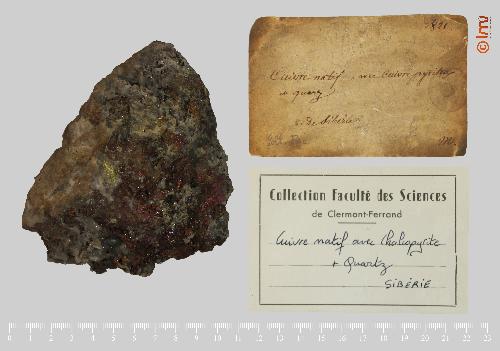 © lmv
Cuivre natif, avec Cuivre pyriteux
et quarz
de Sibérie
Collection Faculté des Sciences
de Clermont-Ferrand
Cuivre natif avec Chalcopyrite
+ Quartz
SIBÉRIE
0 1 2 3 4 5 6 7 8 9 10 11 12 13 14 15 16 17 18 19 20 21 22 23